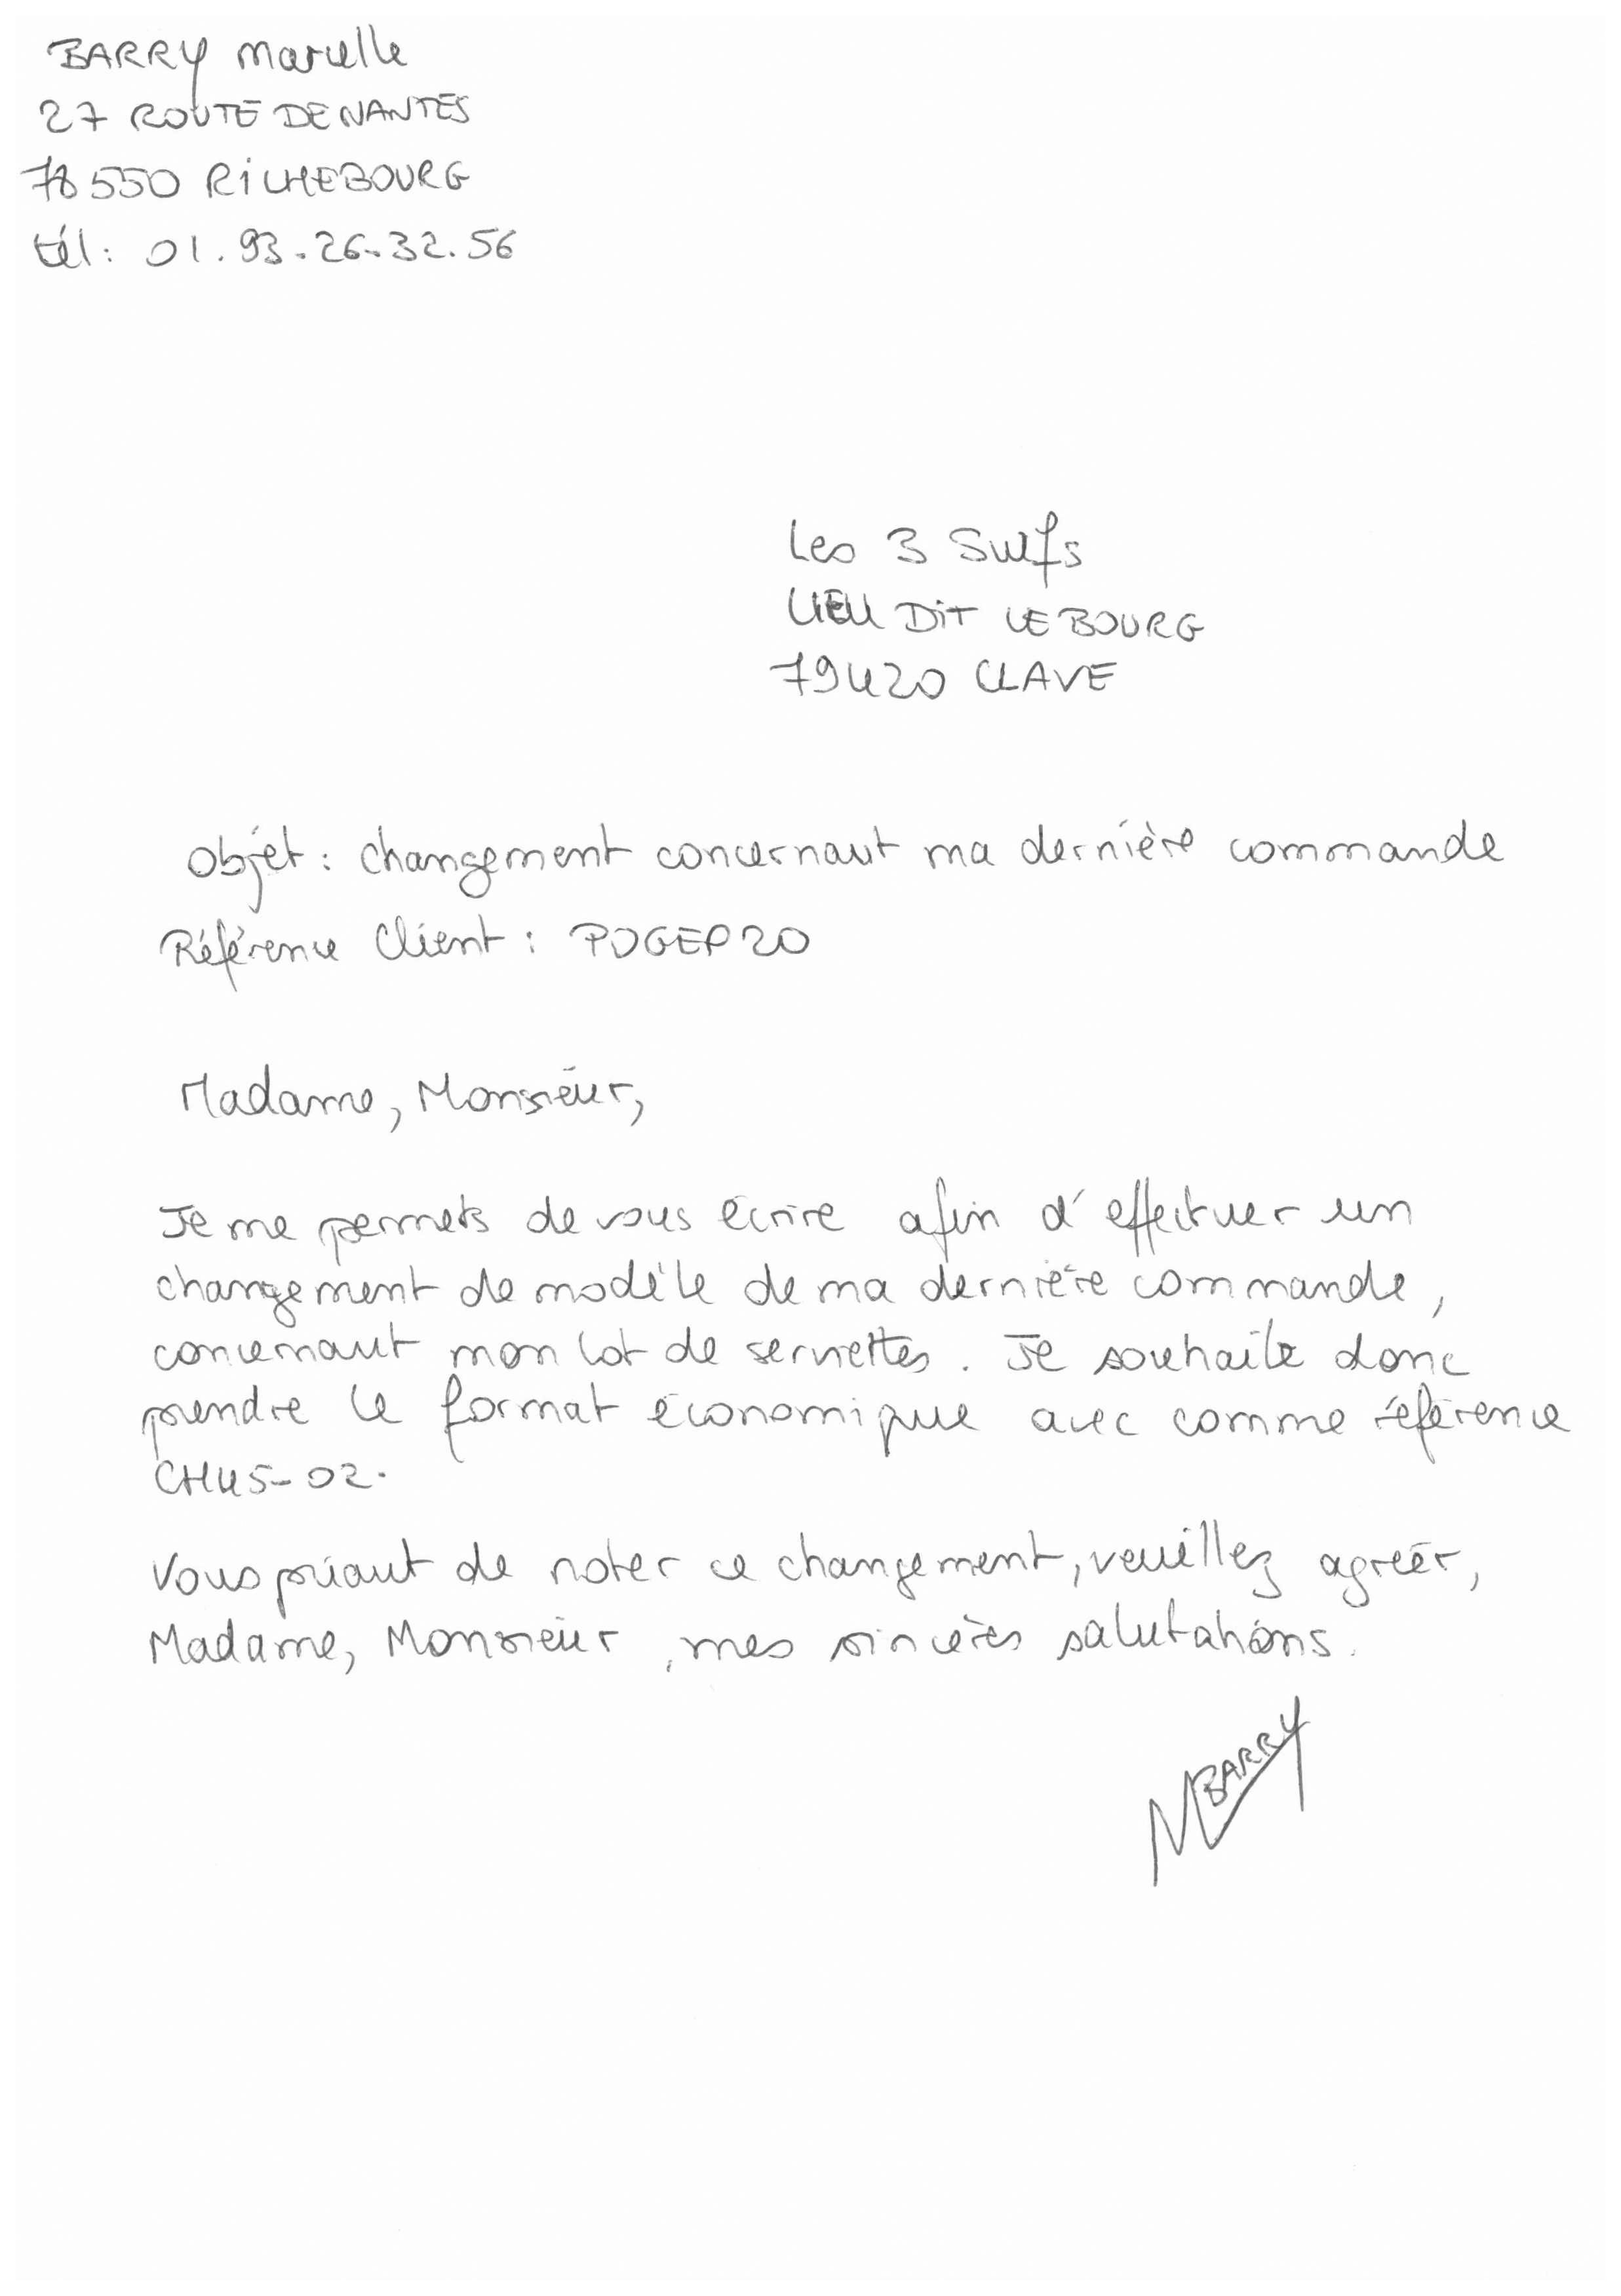 BARRY Marielle
27 ROUTE DE NANTES
78550 RICHEBOURG
tél: 01.93.26.32.56
Les 3 Surfs
LIEU DIT LE BOURG
79420 CLAVE
Objet: changement concernant ma dernière commande
Référence Client: POGEP20
Madame, Monsieur,
Je me permets de vous écrire afin d'effectuer un
changement de modèle de ma dernière commande,
concernant mon lot de serviettes. Je souhaite donc
prendre le format économique avec comme référence
CH45-02.
Vous priant de noter ce changement, veuillez agréer,
Madame, Monsieur, mes sincères salutations.
MBARRY